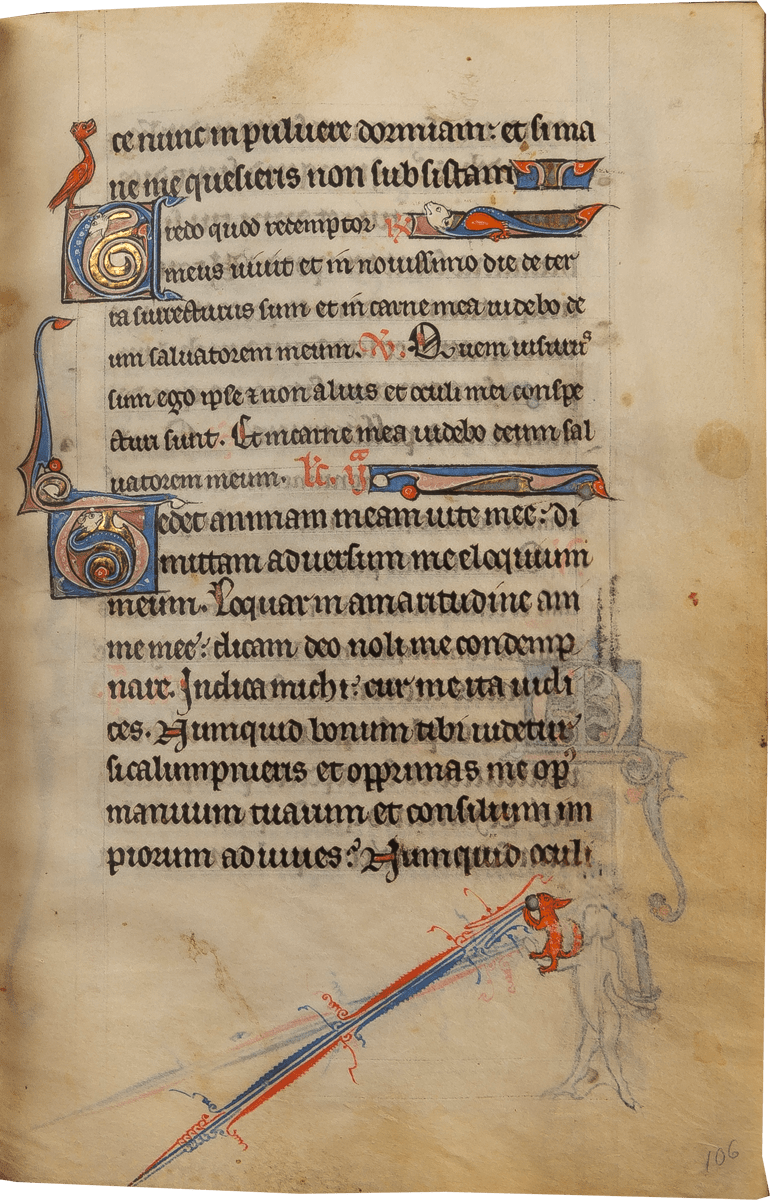 ce nunc in puluere dormiam: et si ma
ne me quesieris non subsistam
Credo quod redemptor R
meus uiuit et in nouissimo die de ter
ra surrecturus sum et in carne mea uidebo de
um saluatorem meum. V. Quem uisurus
sum ego ipse ⁊ non alius et oculi mei conspe
cturi sunt. Et in carne mea uidebo deum sal
uatorem meum. lc. ija
Tedet animam meam uite mee: di
mittam aduersum me eloquium
meum. Loquar in amaritudine ani
me mee: dicam deo noli me condemp
nare. Indica michi: cur me ita iudi
ces. Numquid bonum tibi uidetur
si calumpnieris et opprimas me op
manuum tuarum et consilium im
piorum adiuues: Numquid oculi
106